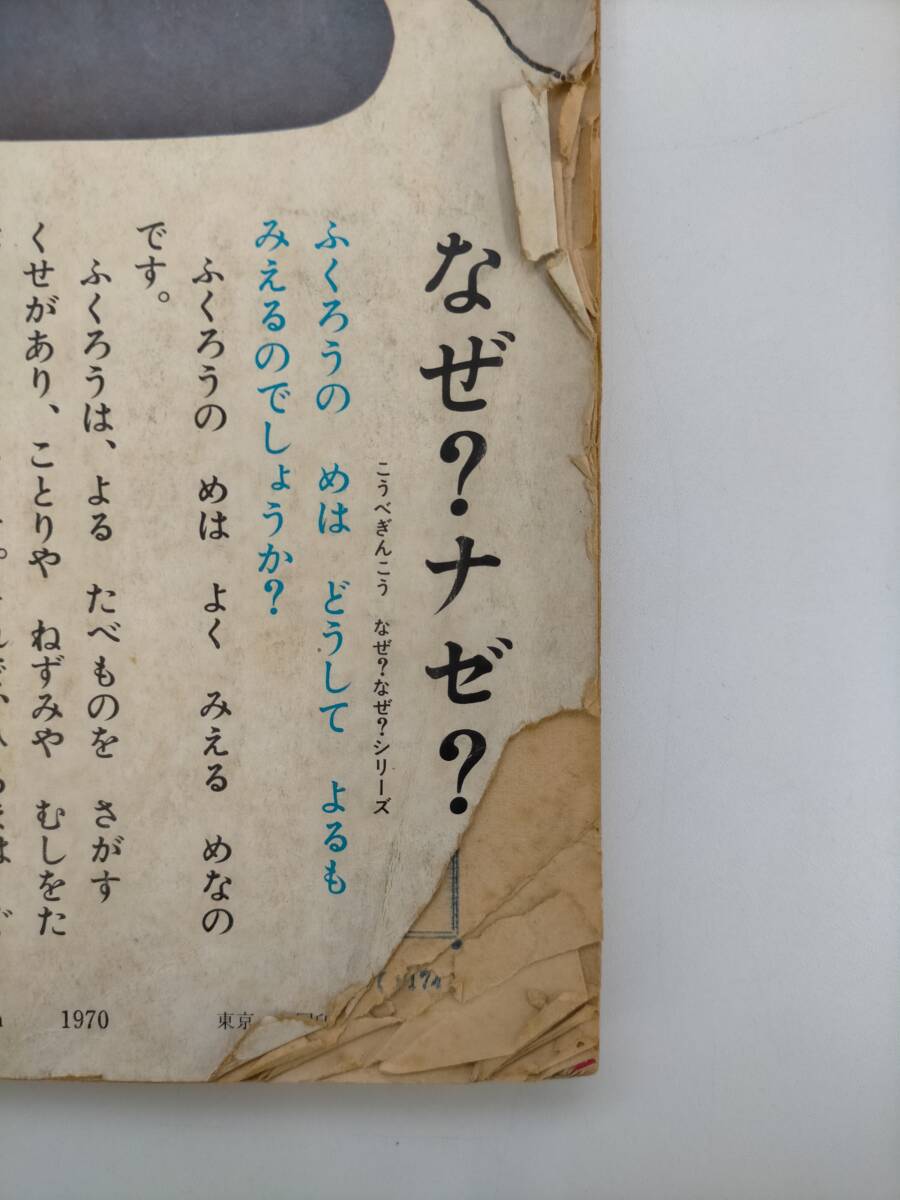 なぜ?ナゼ?
こうべぎんこう なぜ?なぜ?シリーズ
ふくろうの めは どうして よるも
みえるのでしょうか?
ふくろうの めは よく みえる めなの
です。
ふくろうは、よる たべものを さがす
くせがあり、ことりや ねずみや むしをた
1970
東京